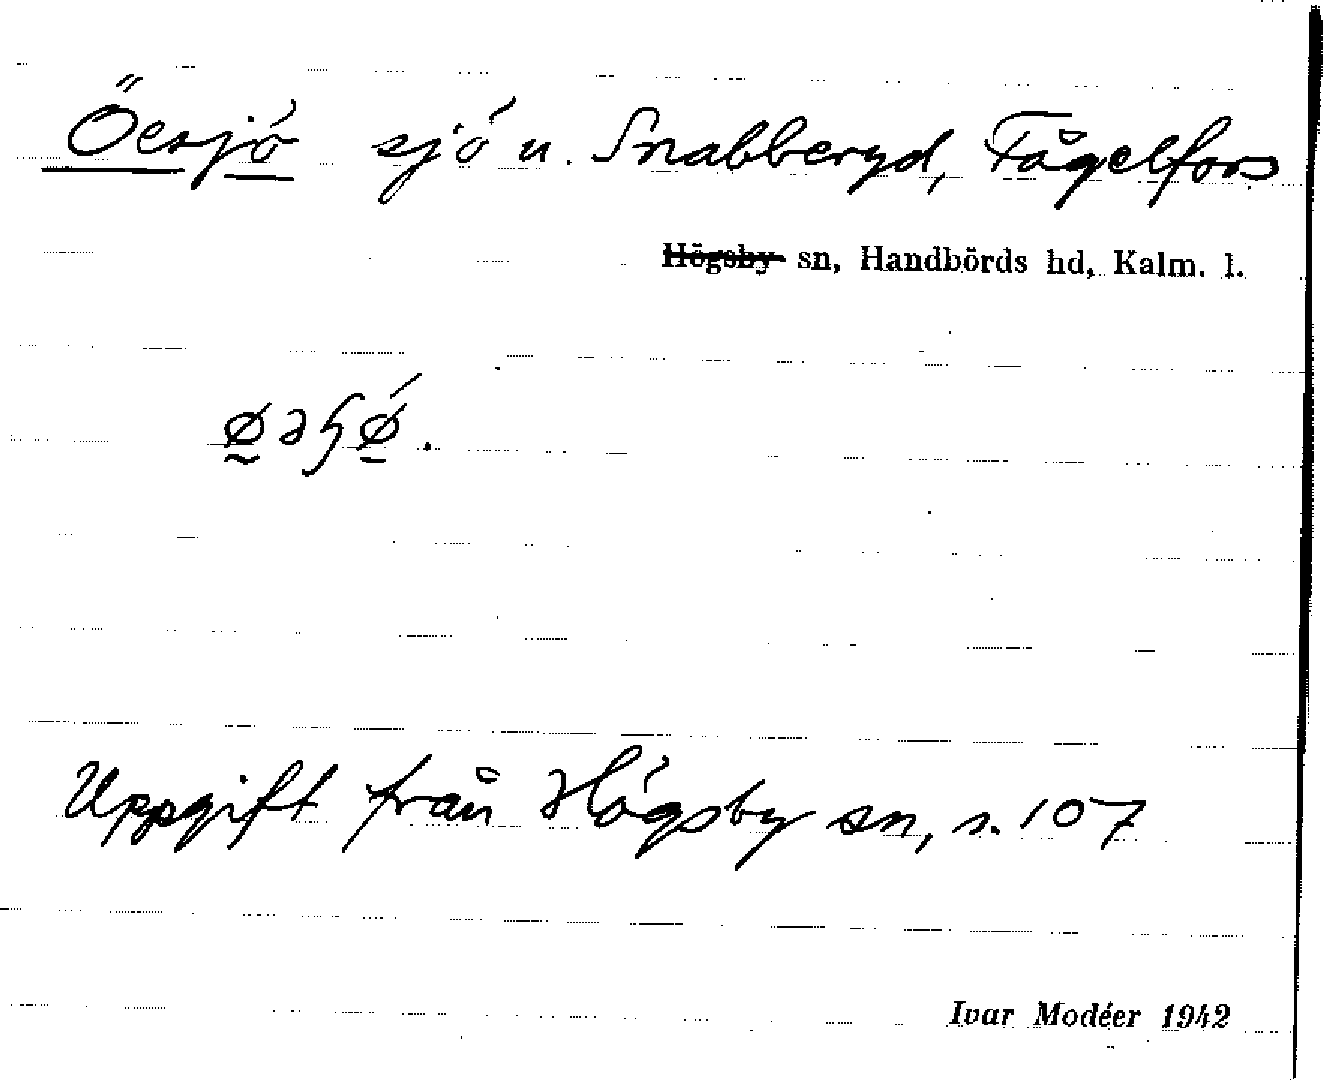 Öesjö sjö u. Snabberyd, Fågelfors
Högsby sn, Handbörds hd, Kalm. l.
Uppgift från Högsby sn, s. 107
Ivar Modéer 1942